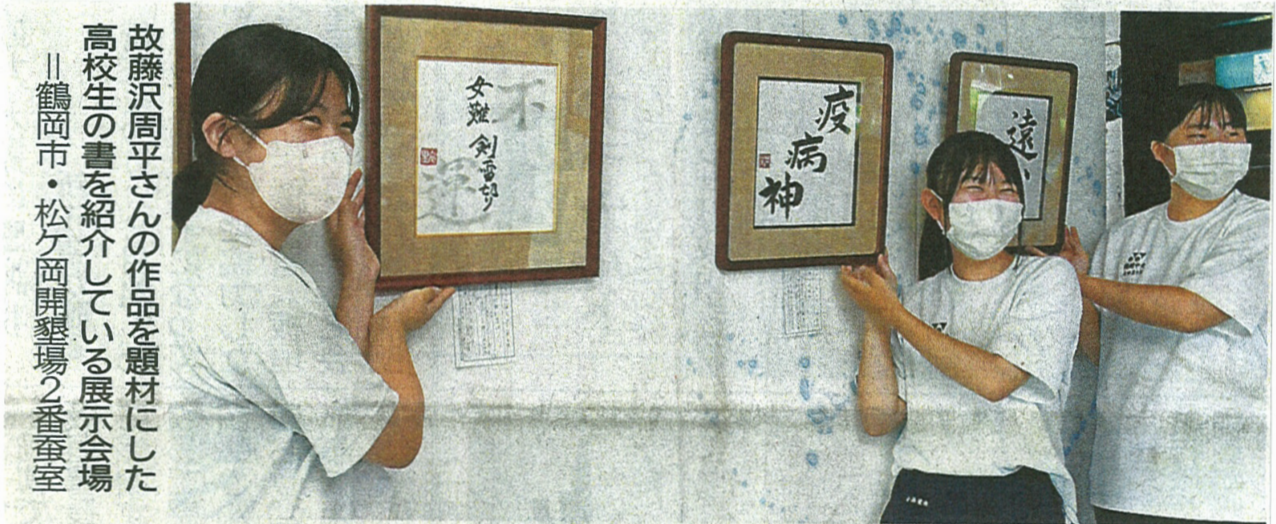 故藤沢周平さんの作品を題材にした
高校生の書を紹介している展示会場
=鶴岡市・松ケ岡開墾場2番蚕室
不
逆
女難
剣雷切り
疫
病
神
遠い